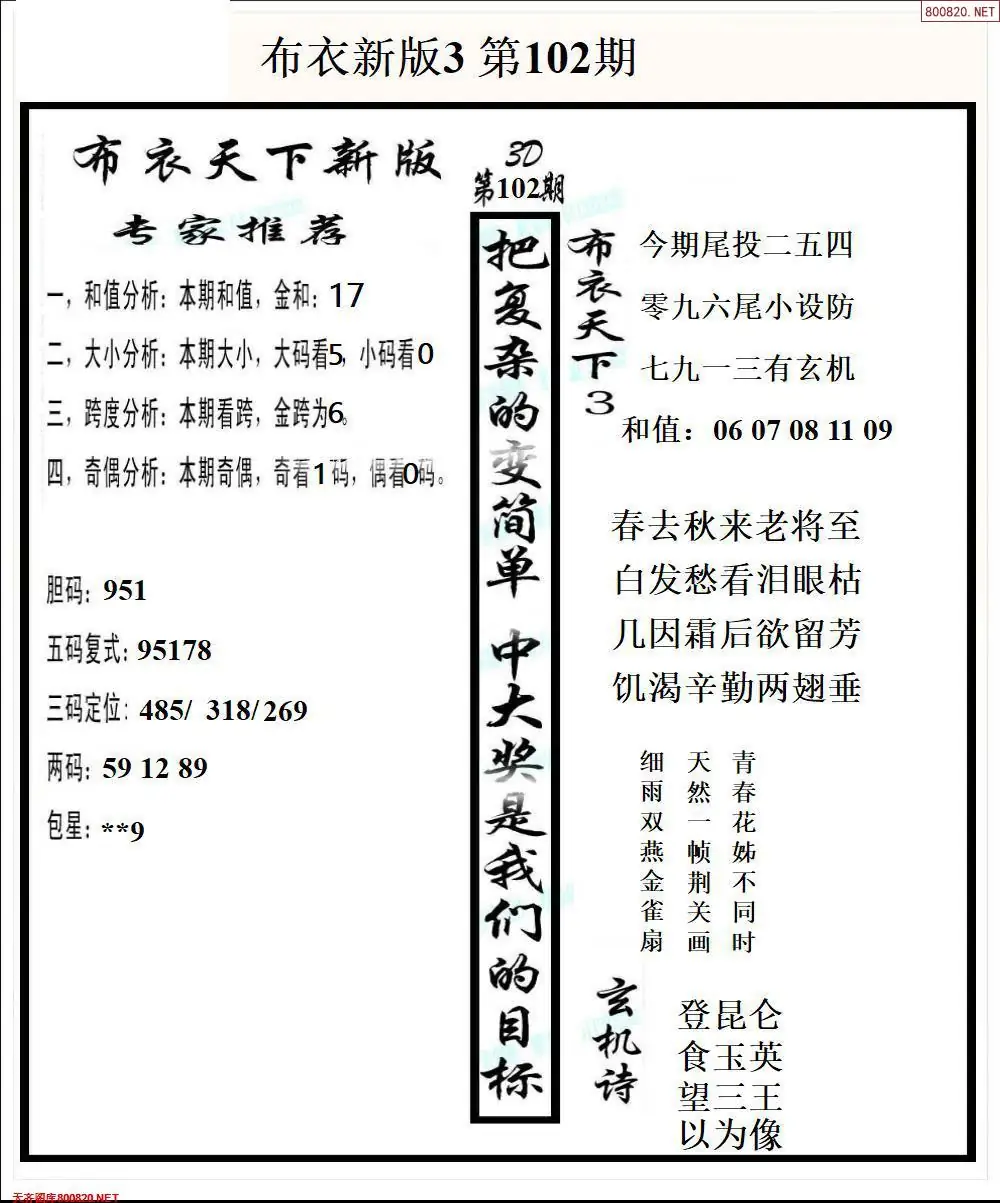 800820.NET
布衣新版3 第102期
布衣天下新版
专家推荐
一，和值分析：本期和值，金和：17
二，大小分析：本期大小，大码看5，小码看0
三，跨度分析：本期看跨，金跨为6。
四，奇偶分析：本期奇偶，奇看1码，偶看0码。
胆码：951
五码复式：95178
三码定位：485/ 318/269
两码：59 12 89
包星：**9
3D
第102期
把复杂的变简单 中大奖是我们的目标
布衣天下3
今期尾投二五四
零九六尾小设防
七九一三有玄机
和值：06 07 08 11 09
春去秋来老将至
白发愁看泪眼枯
几因霜后欲留芳
饥渴辛勤两翅垂
青春花姊不同时
天然一帧荆关画
细雨双燕金雀扇
玄机诗
登昆仑
食玉英
望三王
以为像
天齐图库800820.NET